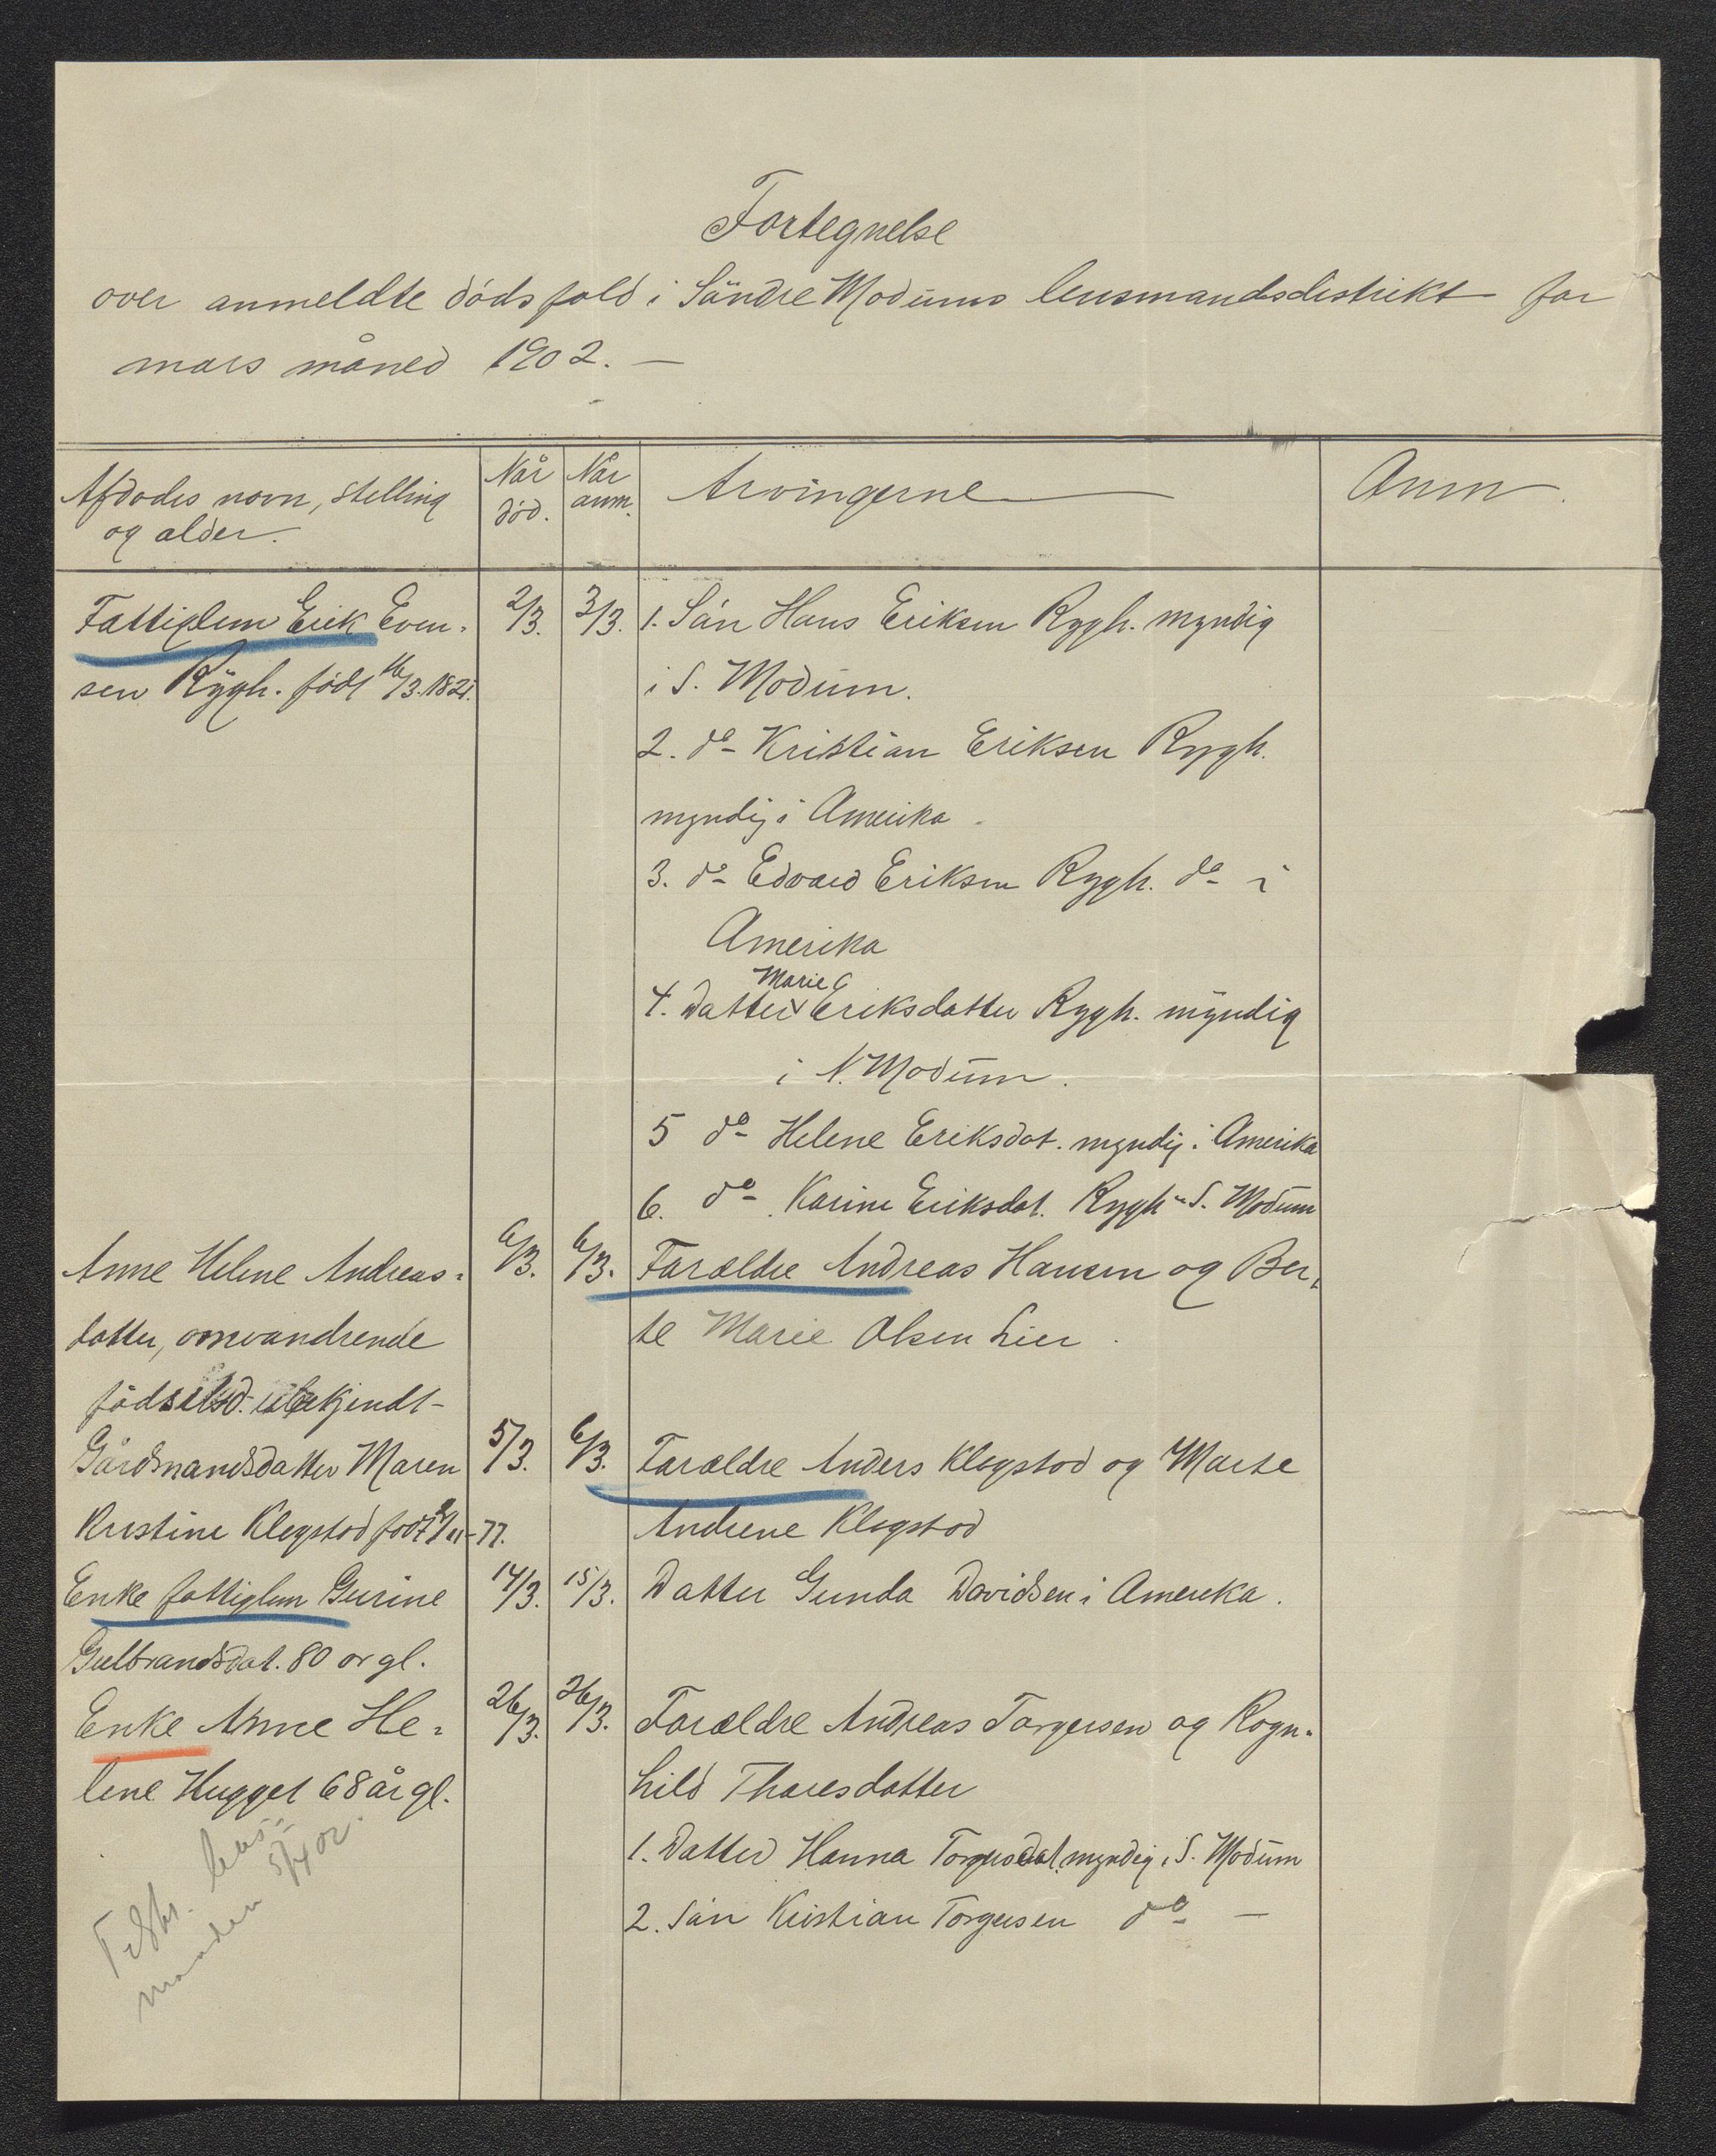 Fortegnelse
over anmeldte dödsfald i Söndre Modums lensmandsdistrikt for
mars måned 1902. —
Afdødes navn, stilling
og alder.
Når
död.
Når
anm.
Arvingerne
Anm.
Fattiglem Erik Even-
sen Rygh. född 16/3. 1821.
2/3.
3/3.
1. Sön Hans Eriksen Rygh. myndig
i S. Modum.
2. do Kristian Eriksen Rygh.
myndig i Amerika
3. do Edvard Eriksen Rygh. do i
Amerika
Marie
4. Datter Eriksdatter Rygh. myndig
i N. Modum.
5 do Helene Eriksdat. myndig i Amerika
6. do Karine Eriksdat. Rygh " S. Modum
Anne Helene Andreas-
datter, omvandrende
födselsd. ubekjendt
6/3.
6/3.
Forældre Andreas Hansen og Ber-
te Marie Olsen Lier.
Gårdmandsdatter Maren
Kristine Klegstod født 2/11-77.
5/3.
6/3.
Forældre Anders Klegstod og Marte
Andrene Klegstod
Enke fattiglem Gurine
Gulbrandsdat. 80 år gl.
14/3.
15/3.
Datter Gunda Davidsen i Amerika.
Enke Anne He-
lene Hugget 68 år gl.
26/3.
26/3.
Forældre Andreas Torgersen og Rogn-
hild Thoresdatter
1. Datter Hanna Torgersdat. myndig i S. Modum
2. Sön Kristian Torgersen do —
Tilskr. lens-
manden 5/4 02.